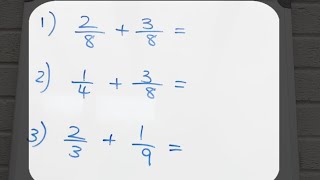 1) 2/8 + 3/8 =
2) 1/4 + 3/8 =
3) 2/3 + 1/9 =